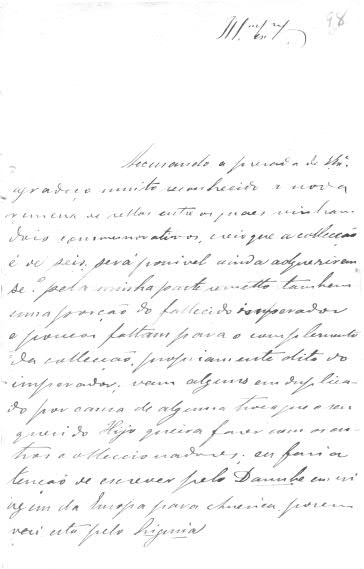 98
Ill.mo Snr.
Accusando a presada de V.Sa.
agradeço muito reconhecido a nova
remessa de sellos entre os quaes vinham
dois commemorativos, creio que a collecção
é de seis, será possivel ainda adquerirem
se? pela minha parte remetto tambem
uma porção do fallecido imperador
e poucos faltam para o complemento
da collecção, propriamente dita do
imperador, vam alguns em duplica-
do por causa de alguma troca que o seu
querido Hijo queira fazer com os ou-
tros colleccionadores. eu faria
tenção de escrever pelo Danube em vi
agem da Europa para America, porem
veri está pelo